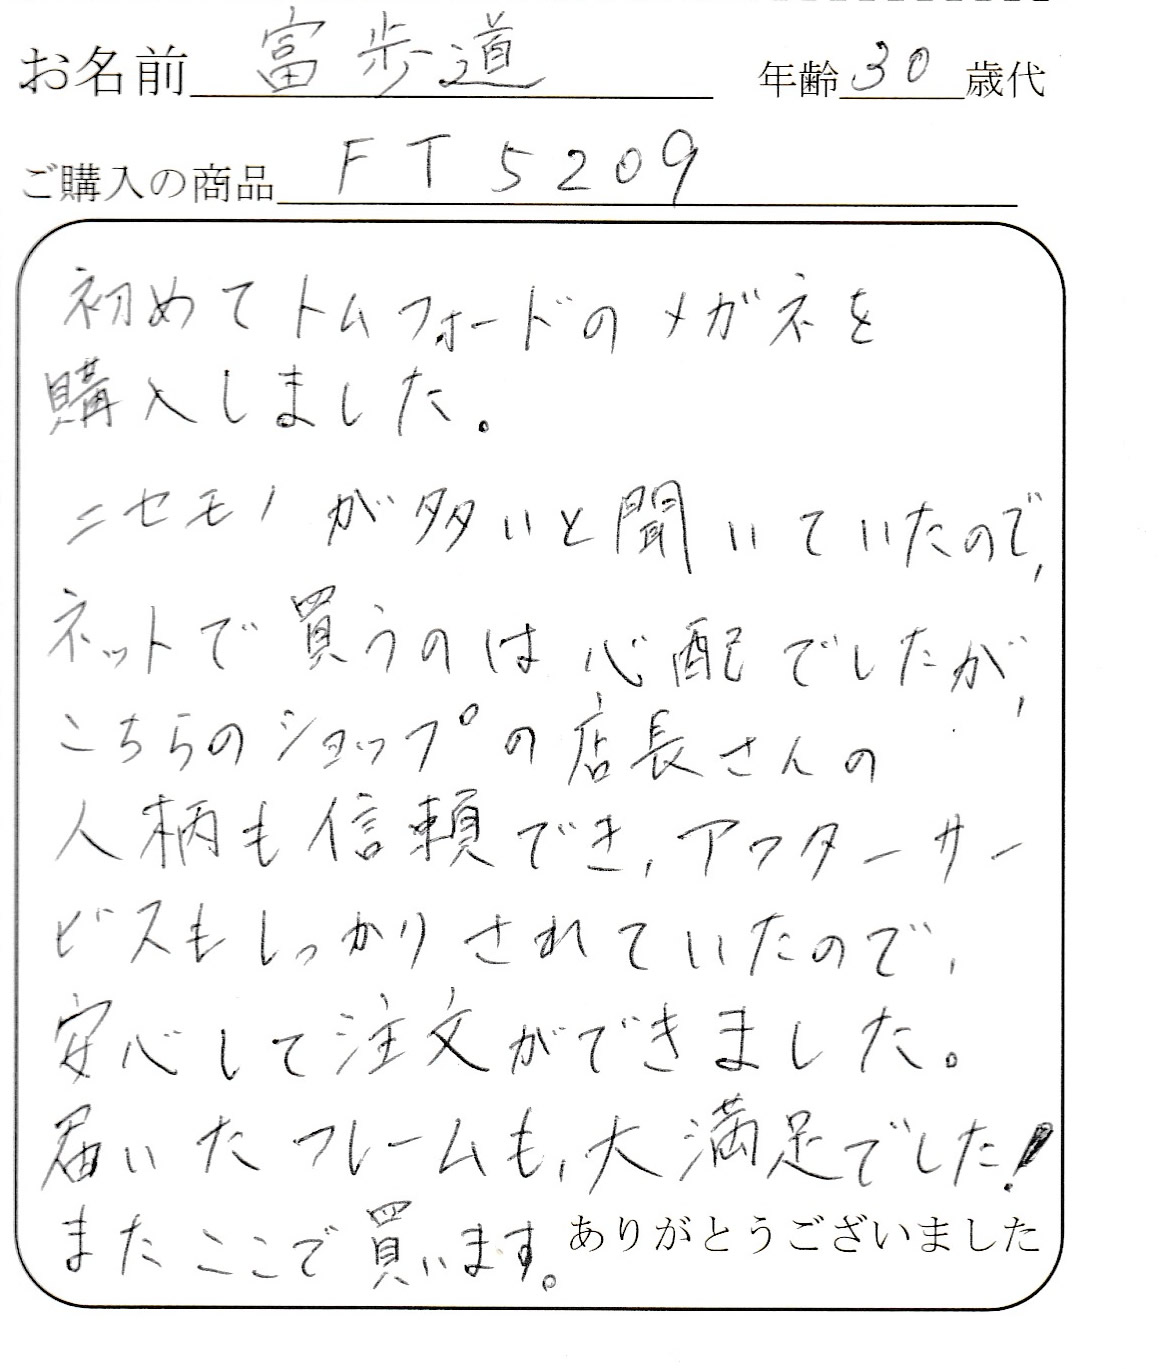 お名前 富歩道 年齢 30 歳代
ご購入の商品 FT5209
初めてトムフォードのメガネを
購入しました。
ニセモノが多いと聞いていたので、
ネットで買うのは心配でしたが、
こちらのショップの店長さんの
人柄も信頼でき、アフターサー
ビスもしっかりされていたので、
安心して注文ができました。
届いたフレームも、大満足でした!
またここで買います。
ありがとうございました